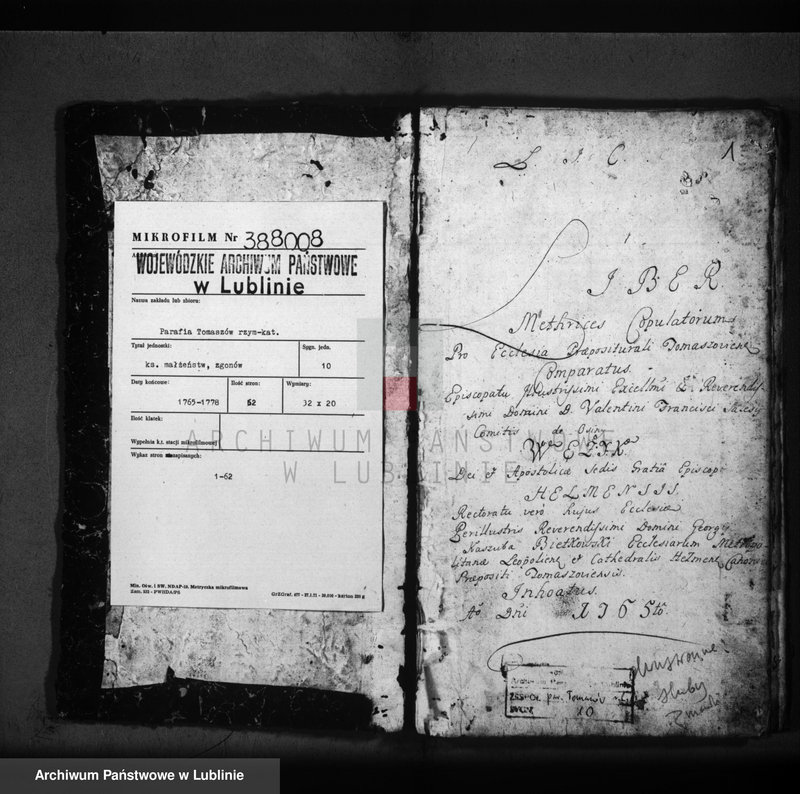 MIKROFILM Nr 388008
WOJEWÓDZKIE ARCHIWUM PAŃSTWOWE
w Lublinie
Nazwa zakładu lub zbioru:
Parafia Tomaszów rzym-kat.
Tytuł jednostki:
Sygn. jedn.
ks. małżeństw, zgonów
10
Daty końcowe:
Ilość stron:
Wymiary:
1765-1778
62
32 x 20
Ilość klatek:
Wypełnia k.t. stacji mikrofilmowej
Wykaz stron zapisanych:
1-62
1
L. J. C.
LIBER
Methrices Copulatorum
Pro Ecclesia Præpositurali Tomaszoviens
Comparatus.
Episcopatu Illustrissimi Excellmi & Reverendis-
simi Domini D. Valentini Francisci
Comitis de Osiny
WĘŻYK
Dei & Apostolicæ Sedis Gratiâ Episcopi
HELMENSIS.
Rectoratu vero hujus Ecclesiæ
Perillustris Reverendissimi Domini Georgy
Kaszuba Bietkowski Ecclesiarum Metropo
litanæ Leopoliens & Cathedralis Helmens Canonici
Præpositi Tomaszoviensis.
Inhoatus.
Ao Dni 1765to.
par. Tomaszów
10
śluby
ARCHIWUM PAŃSTWOWE
W LUBLINIE
Archiwum Państwowe w Lublinie